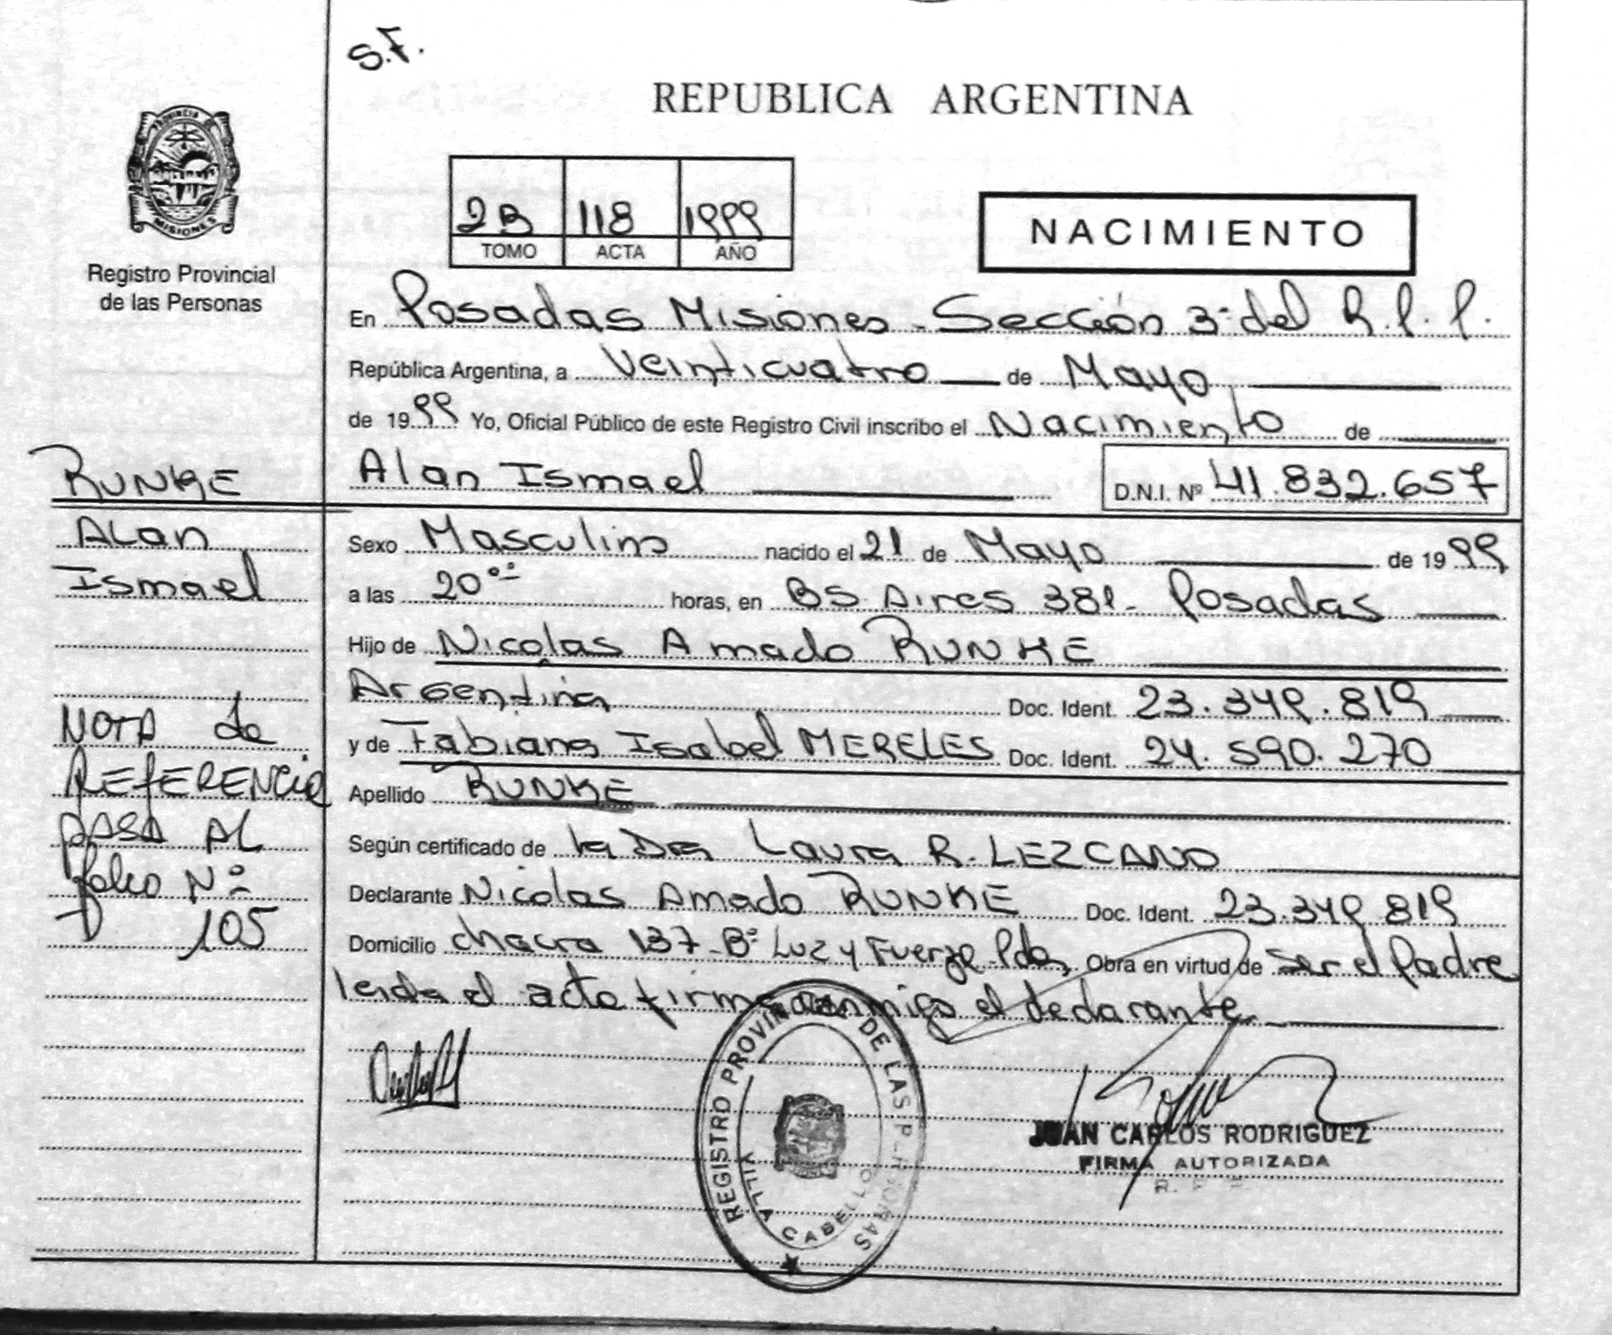 S.F.
REPUBLICA ARGENTINA
PROVINCIA DE MISIONES
Registro Provincial
de las Personas
2B 118 1999
TOMO ACTA AÑO
NACIMIENTO
En Posadas Misiones - Sección 3ª del R.P.P.
República Argentina, a Veinticuatro de Mayo
de 1999 Yo, Oficial Público de este Registro Civil inscribo el Nacimiento de
Alan Ismael D.N.I. Nº 41.832.657
Sexo Masculino nacido el 21 de Mayo de 1999
a las 20 horas, en BS Aires 381 - Posadas
Hijo de Nicolas Amado RUNKE
Argentina Doc. Ident. 23.349.819
y de Fabiana Isabel MERELES Doc. Ident. 24.590.270
Apellido RUNKE
Según certificado de la Dra Laura R. LEZCANO
Declarante Nicolas Amado RUNKE Doc. Ident. 23.349.819
Domicilio chacra 137 - Bº Luz y Fuerza Pdas, Obra en virtud de ser el Padre
leida el acta firma conmigo el declarante
RUNKE
Alan
Ismael
NOTA de
REFERENCIA
PASA AL
folio Nº
105
REGISTRO PROVINCIAL DE LAS PERSONAS
VILLA CABELLO
JUAN CARLOS RODRIGUEZ
FIRMA AUTORIZADA
R. P. P.